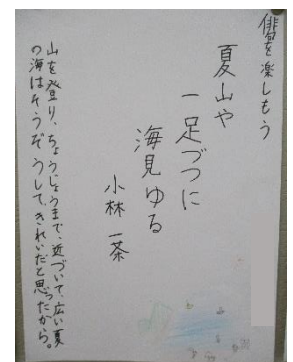 俳句を楽しもう
夏山や
一足づつに
海見ゆる
小林一茶
山を登り、ちょうじょうまで、近づいて、広い夏
の海はそうぞうして、きれいだと思ったから。